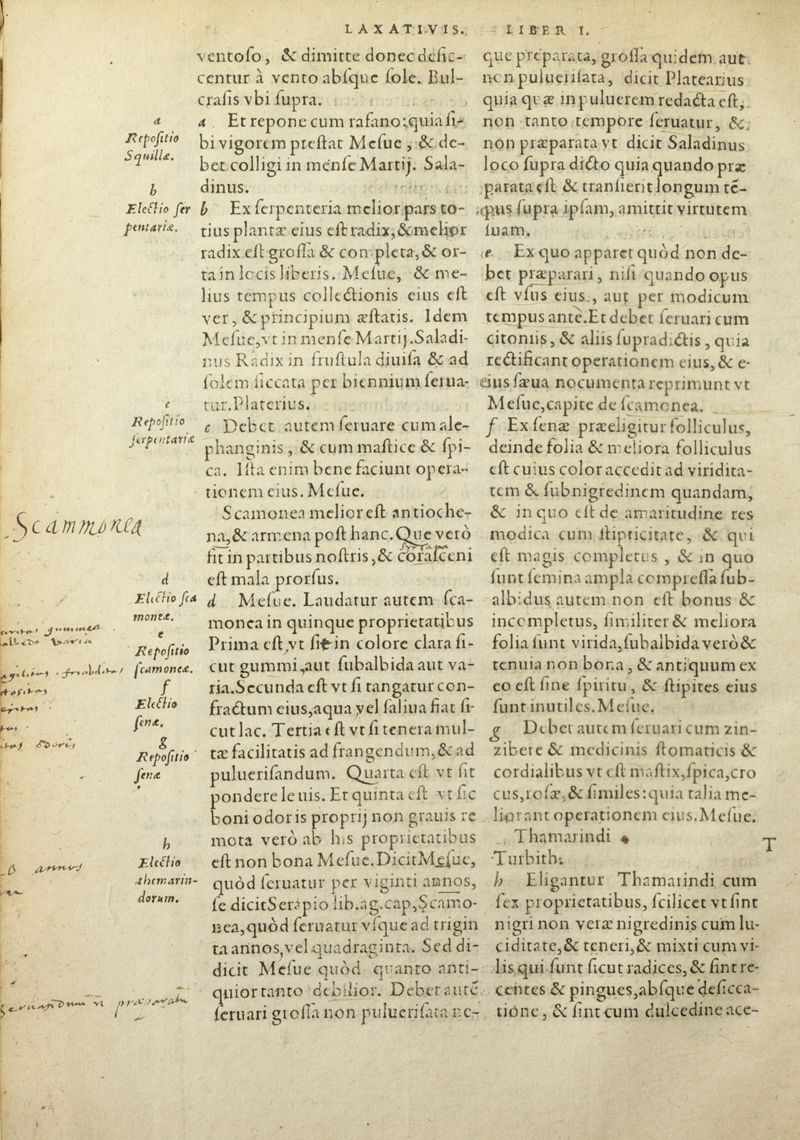 LAXATIVIS. LIBER I.
ventoſo, & dimitte donec deſic-
centur à vento abſque ſole. Bul-
craſis vbi ſupra.
a Et repone cum rafano: quia ſi-
bi vigorem preſtat Meſue, & de-
bet colligi in menſe Martij. Sala-
dinus.
b Ex ſerpenteria melior pars to-
tius plantæ eius eſt radix, & melior
radix eſt groſſa & completa, & or-
ta in locis liberis. Meſue, & me-
lius tempus collectionis eius eſt
ver, & principium æſtatis. Idem
Meſue, vt in menſe Martij. Saladi-
nus Radix in fruſtula diuiſa & ad
ſolem ſiccata per biennium ſerua-
tur. Platerius.
c Debet autem ſeruare cum ale-
phanginis, & cum maſtice & ſpi-
ca. Iſta enim bene faciunt opera-
tionem eius. Meſue.
Scamonea melior eſt antioche-
na, & armena poſt hanc. Que verò
fit in partibus noſtris, & coraſceni
eſt mala prorſus.
d Meſue. Laudatur autem ſca-
monea in quinque proprietatibus
Prima eſt, vt ſit in colore clara ſi-
cut gummi, aut ſubalbida aut va-
ria. Secunda eſt vt ſi tangatur con-
fractum eius, aqua vel ſaliua fiat ſi-
cut lac. Tertia eſt vt ſi tenera mul-
tæ facilitatis ad frangendum, & ad
pulueriſandum. Quarta eſt vt ſit
pondere leuis. Et quinta eſt vt ſic
boni odoris proprij non grauis re
mota verò ab his proprietatibus
eſt non bona Meſue. Dicit Meſue,
quòd ſeruatur per viginti annos,
ſe dicit Serapio lib. ag. cap, Scamo-
nea, quòd ſeruatur vſque ad trigin
ta annos, vel quadraginta. Sed di-
dicit Meſue quòd quanto anti-
quior tanto debilior. Debet autẽ
ſeruari groſſa non pulueriſata ne-
que preparata, groſſa quidem aut
non pulueriſata, dicit Platearius
quia quæ in puluerem redacta eſt,
non tanto tempore ſeruatur, &
non præparata vt dicit Saladinus
loco ſupra dicto quia quando præ
parata eſt & tranſierit longum tẽ-
pus ſupra ipſam, amittit virtutem
ſuam.
e Ex quo apparet quòd non de-
bet præparari, niſi quando opus
eſt vſus eius, aut per modicum
tempus ante. Et debet ſeruari cum
citoniis, & aliis ſupradictis, quia
rectificant operationem eius, & e-
ius ſæua nocumenta reprimunt vt
Meſue, capite de ſcamonea.
f Ex ſenæ præeligitur folliculus,
deinde folia & meliora folliculus
eſt cuius color accedit ad viridita-
tem & ſubnigredinem quandam,
& in quo eſt de amaritudine res
modica cum ſtipticitate, & qui
eſt magis completus, & in quo
ſunt ſemina ampla compreſſa ſub-
albidus autem non eſt bonus &
incompletus, ſimiliter & meliora
folia ſunt virida, ſubalbida verò &
tenuia non bona, & antiquum ex
eo eſt ſine ſpiritu, & ſtipites eius
ſunt inutiles. Meſue.
g Debet autem ſeruari cum zin-
zibere & medicinis ſtomaticis &
cordialibus vt eſt maſtix, ſpica, cro
cus, roſæ, & ſimiles: quia talia me-
liorant operationem eius. Meſue.
Thamarindi
Turbith.
h Eligantur Thamarindi cum
ſex proprietatibus, ſcilicet vt ſint
nigri non veræ nigredinis cum lu-
ciditate, & teneri, & mixti cum vi-
lis qui ſunt ſicut radices, & ſint re-
centes & pingues, abſque deſicca-
tióne, & ſint cum dulcedine ace-
a
Repoſitio
Squillæ.
b
Electio ſer
pentariæ.
c
Repoſitio
ſerpentariæ
Scammonea
d
Electio ſca
moneæ.
e
Repoſitio
ſcamoneæ.
f
Electio
ſenæ.
g
Repoſitio
ſenæ
h
Electio
themarin-
dorum.
annos
T